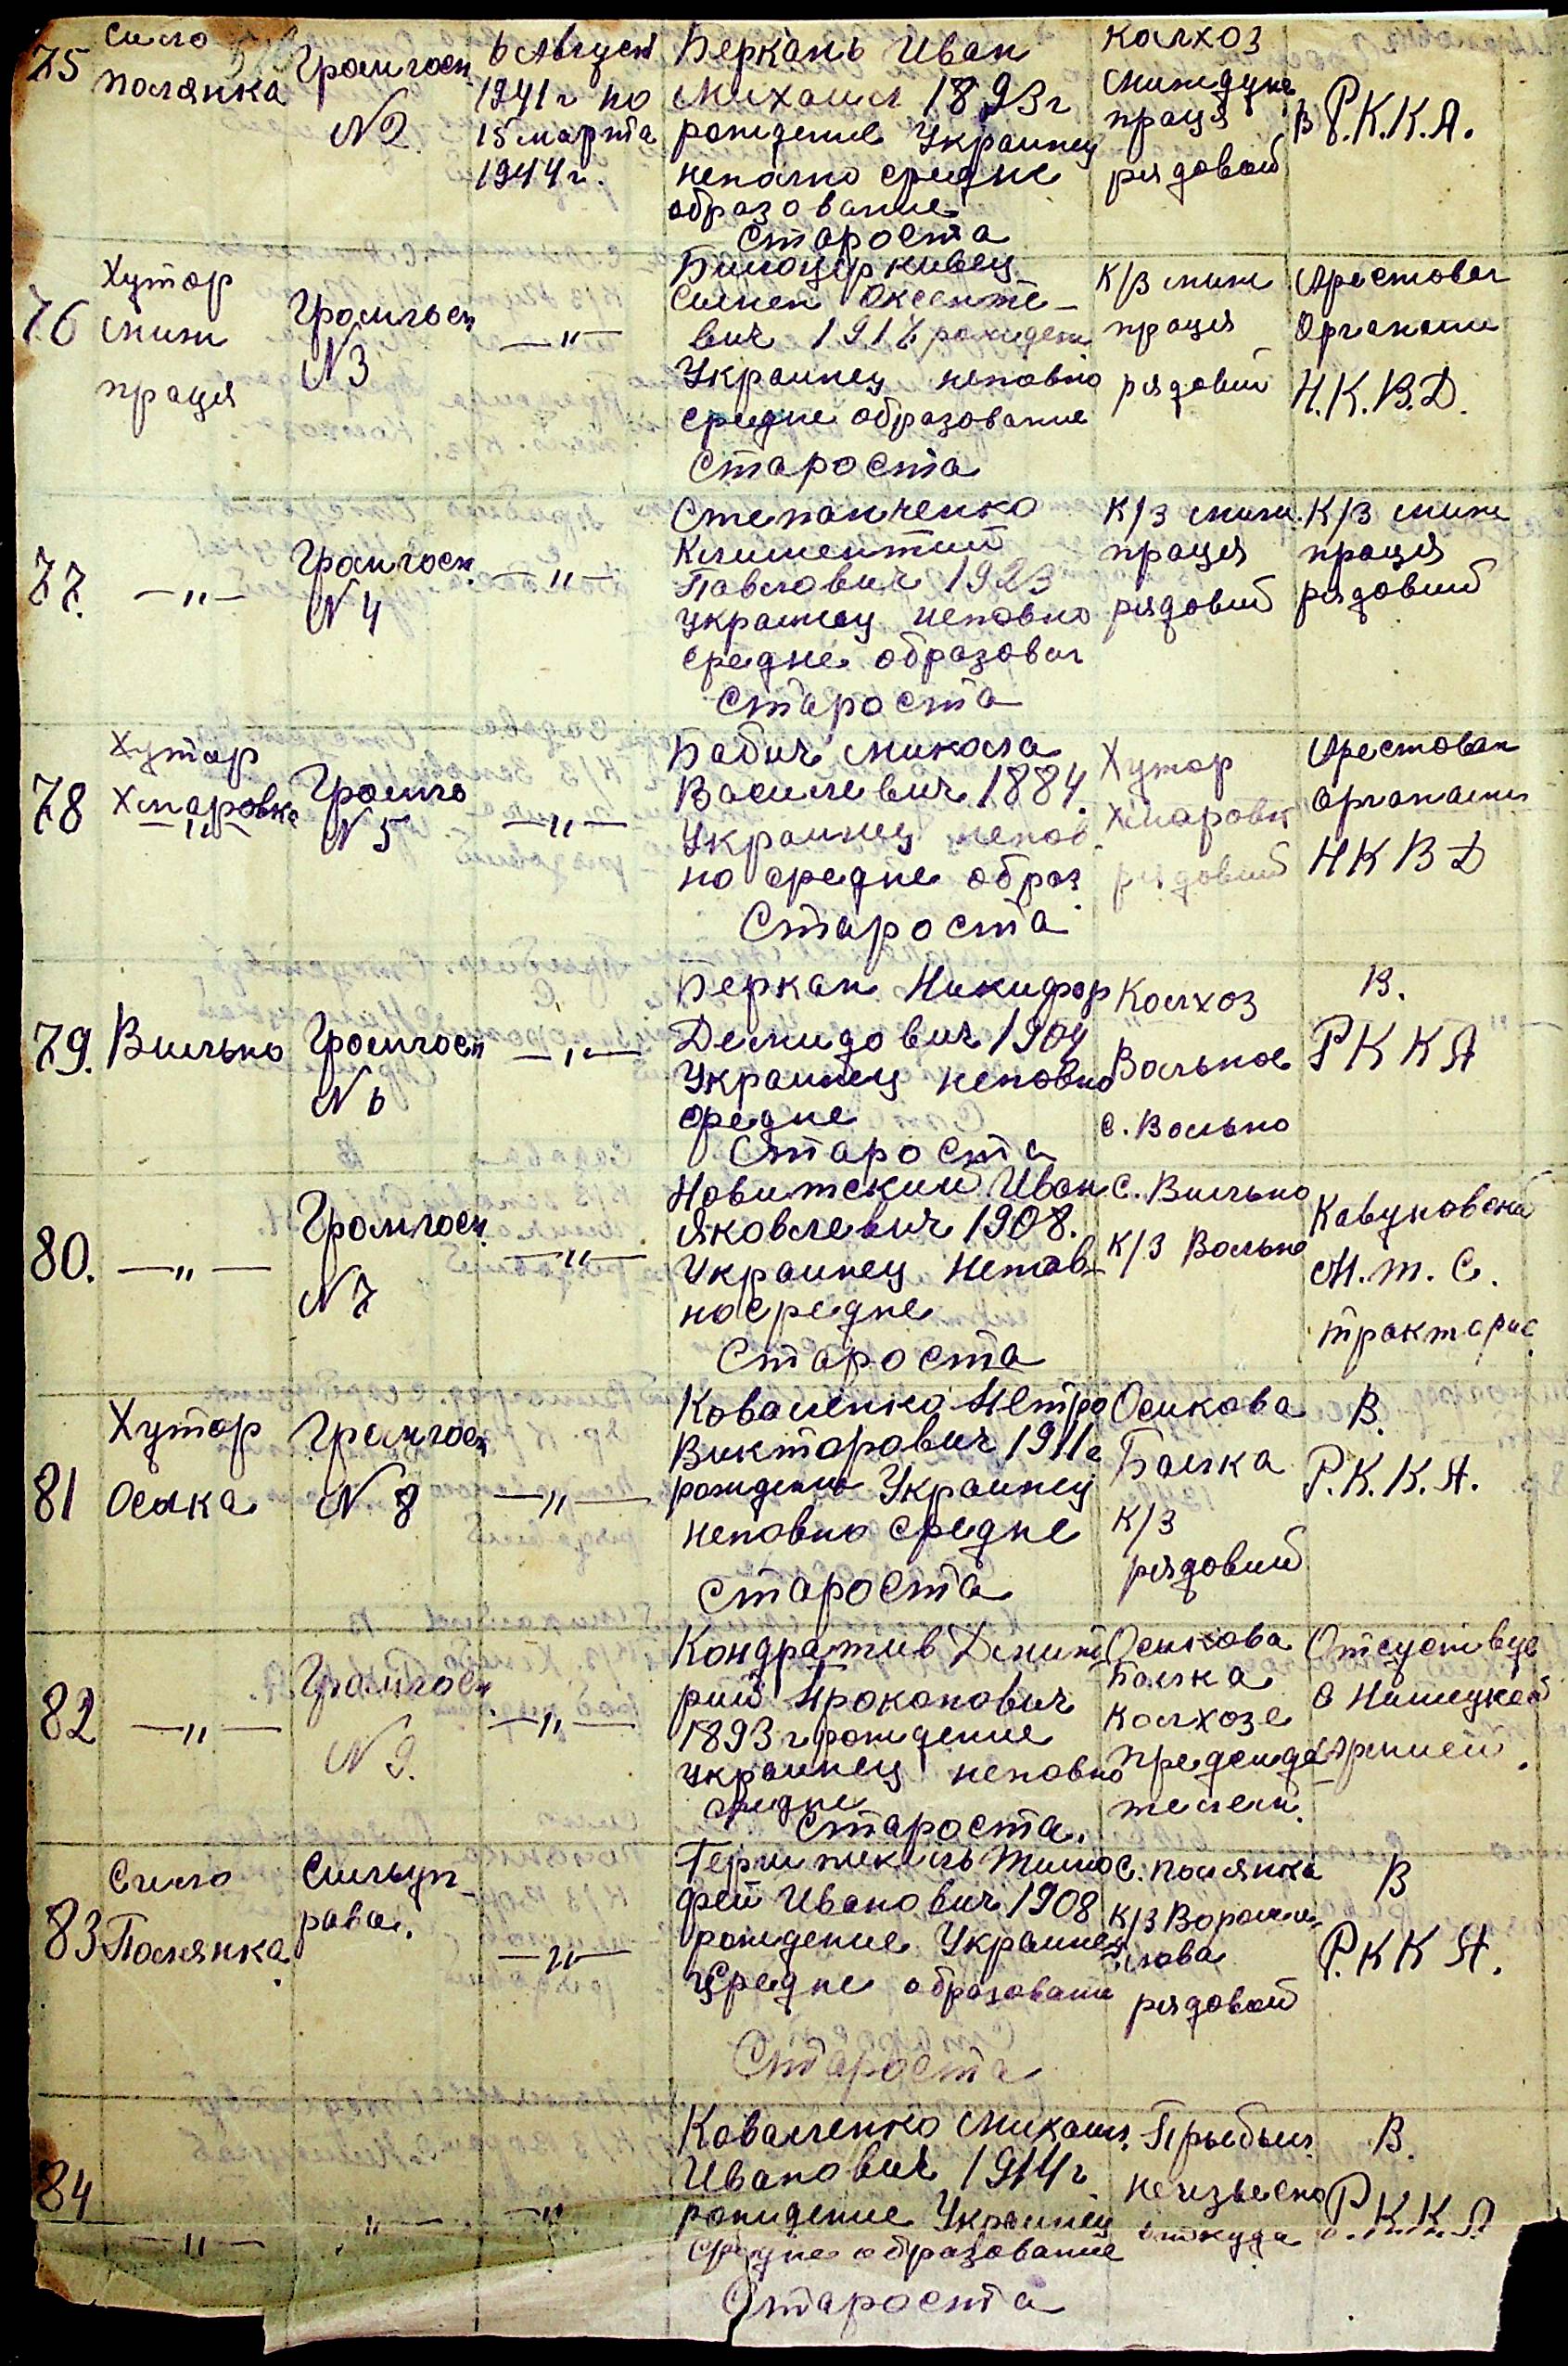 75
Сило
Полянка
Громгосп
N2
6 Август
1941г по
15 марта
1944г.
Беркань Иван
Михаил 1893г
рождение Украинец
непално средне
образование
Староста
Колхоз
праця
рядовой
в Р.К.К.А.
76
Хутор
праця
Громгосп
N3
—"—
Оксенте-
вич 191
Украинец неповно
средне образование
Староста
К/з
праця
рядовий
Арестован
Органами
Н.К.В.Д.
77.
—"—
Громгосп.
N4
—"—
Степанченко
Климентий
Павлович 1923
Украинец неповно
средне образован
Староста
К/з
праця
рядовий
К/з
праця
рядовий
78
Хутор
Хмаровка
—"—
Громго
N5
—"—
Бабич Микола
Василевич 1884.
Украинец непов-
но средне образ.
Староста
Хутор
Хмаровк
рядовий
Арестован
органами
НКВД
79.
Вильно
Громгосп
N6
—"—
Беркан Никифор
Демидович 1904
Украинец неповно
средне
Староста
Колхоз
Вольное
с. Вольно
В.
РККА
80.
—"—
Громгосп.
N7
—"—
Новитский Иван
Яковлевич 1908.
Украинец Непов-
но средне
Староста
с. Вильно
К/з Вольно
М.Т.С.
тракторис
81
Хутор
Осика
Громгосп
N8
—"—
Коваленко Петро
Викторович 1911г
рождение Украинец
неповно средне
Староста
Осикова
Балка
К/З
рядовий
В.
Р.К.К.А.
82
—"—
Громгосп.
N9.
—"—
Кондратив Дмит
рий Прокопович
1893г рождение
украинец неповно
средне
Староста.
Осикова
Балка
Колхозе
председа-
телем.
Отсуствуе
с Нимецкой
Армией.
83
Сило
Полянка.
Сильуп-
рава.
—"—
Тимо
фей Иванович 1908
рождение Украинец
Средне образовани
Староста
с. Полянка
К/з Вороши-
лова
рядовой
В
Р.ККА.
84
—"—
—"—
—"—
Коваленко Михаил.
Иванович 1914г.
рождение Украинец
Средне образование
Староста
Прыбыл
неизвесно
откуда
В.
Р.К.К.А